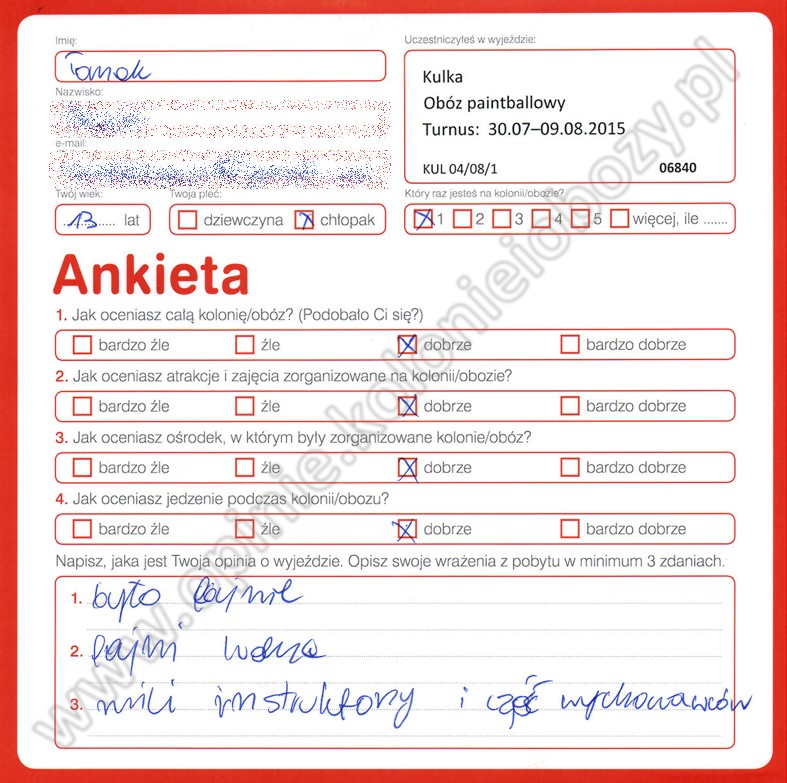 Imię:
Uczestniczyłeś w wyjeździe:
Kulka
Nazwisko:
Obóz paintballowy
Turnus: 30.07–09.08.2015
e-mail:
KUL 04/08/1 06840
Twój wiek: Twoja płeć: Który raz jesteś na kolonii/obozie?
13 lat dziewczyna chłopak 1 2 3 4 5 więcej, ile .......
Ankieta
1. Jak oceniasz całą kolonię/obóz? (Podobało Ci się?)
bardzo źle źle dobrze bardzo dobrze
2. Jak oceniasz atrakcje i zajęcia zorganizowane na kolonii/obozie?
bardzo źle źle dobrze bardzo dobrze
3. Jak oceniasz ośrodek, w którym były zorganizowane kolonie/obóz?
bardzo źle źle dobrze bardzo dobrze
4. Jak oceniasz jedzenie podczas kolonii/obozu?
bardzo źle źle dobrze bardzo dobrze
Napisz, jaka jest Twoja opinia o wyjeździe. Opisz swoje wrażenia z pobytu w minimum 3 zdaniach.
1. było fajnie
2. fajni
3. mili instruktorzy i część wychowawców
www.opinie.kolonieiobozy.pl